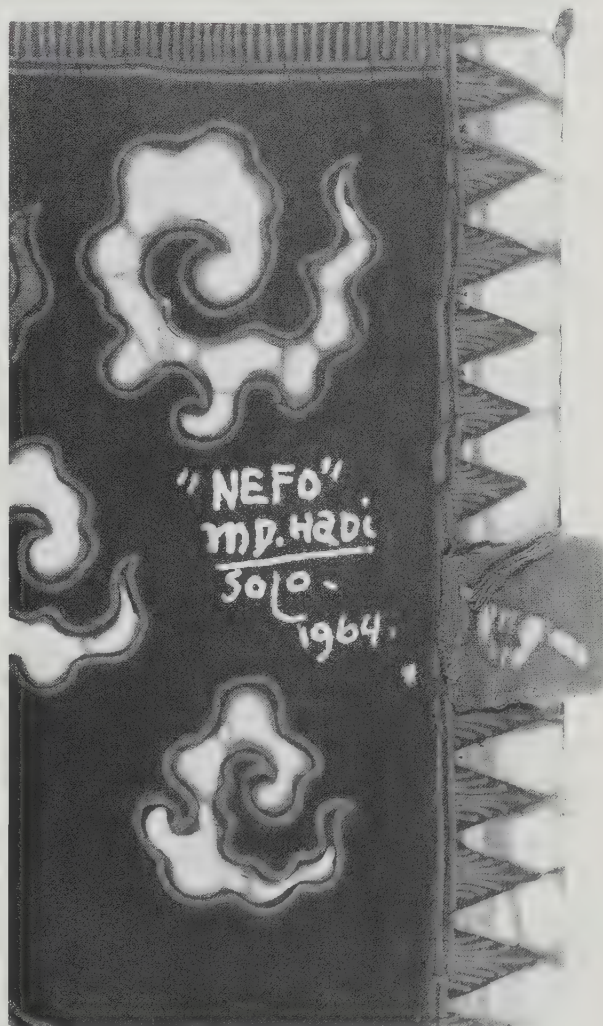 "NEFO"
MD. HADI
SOLO -
1964.